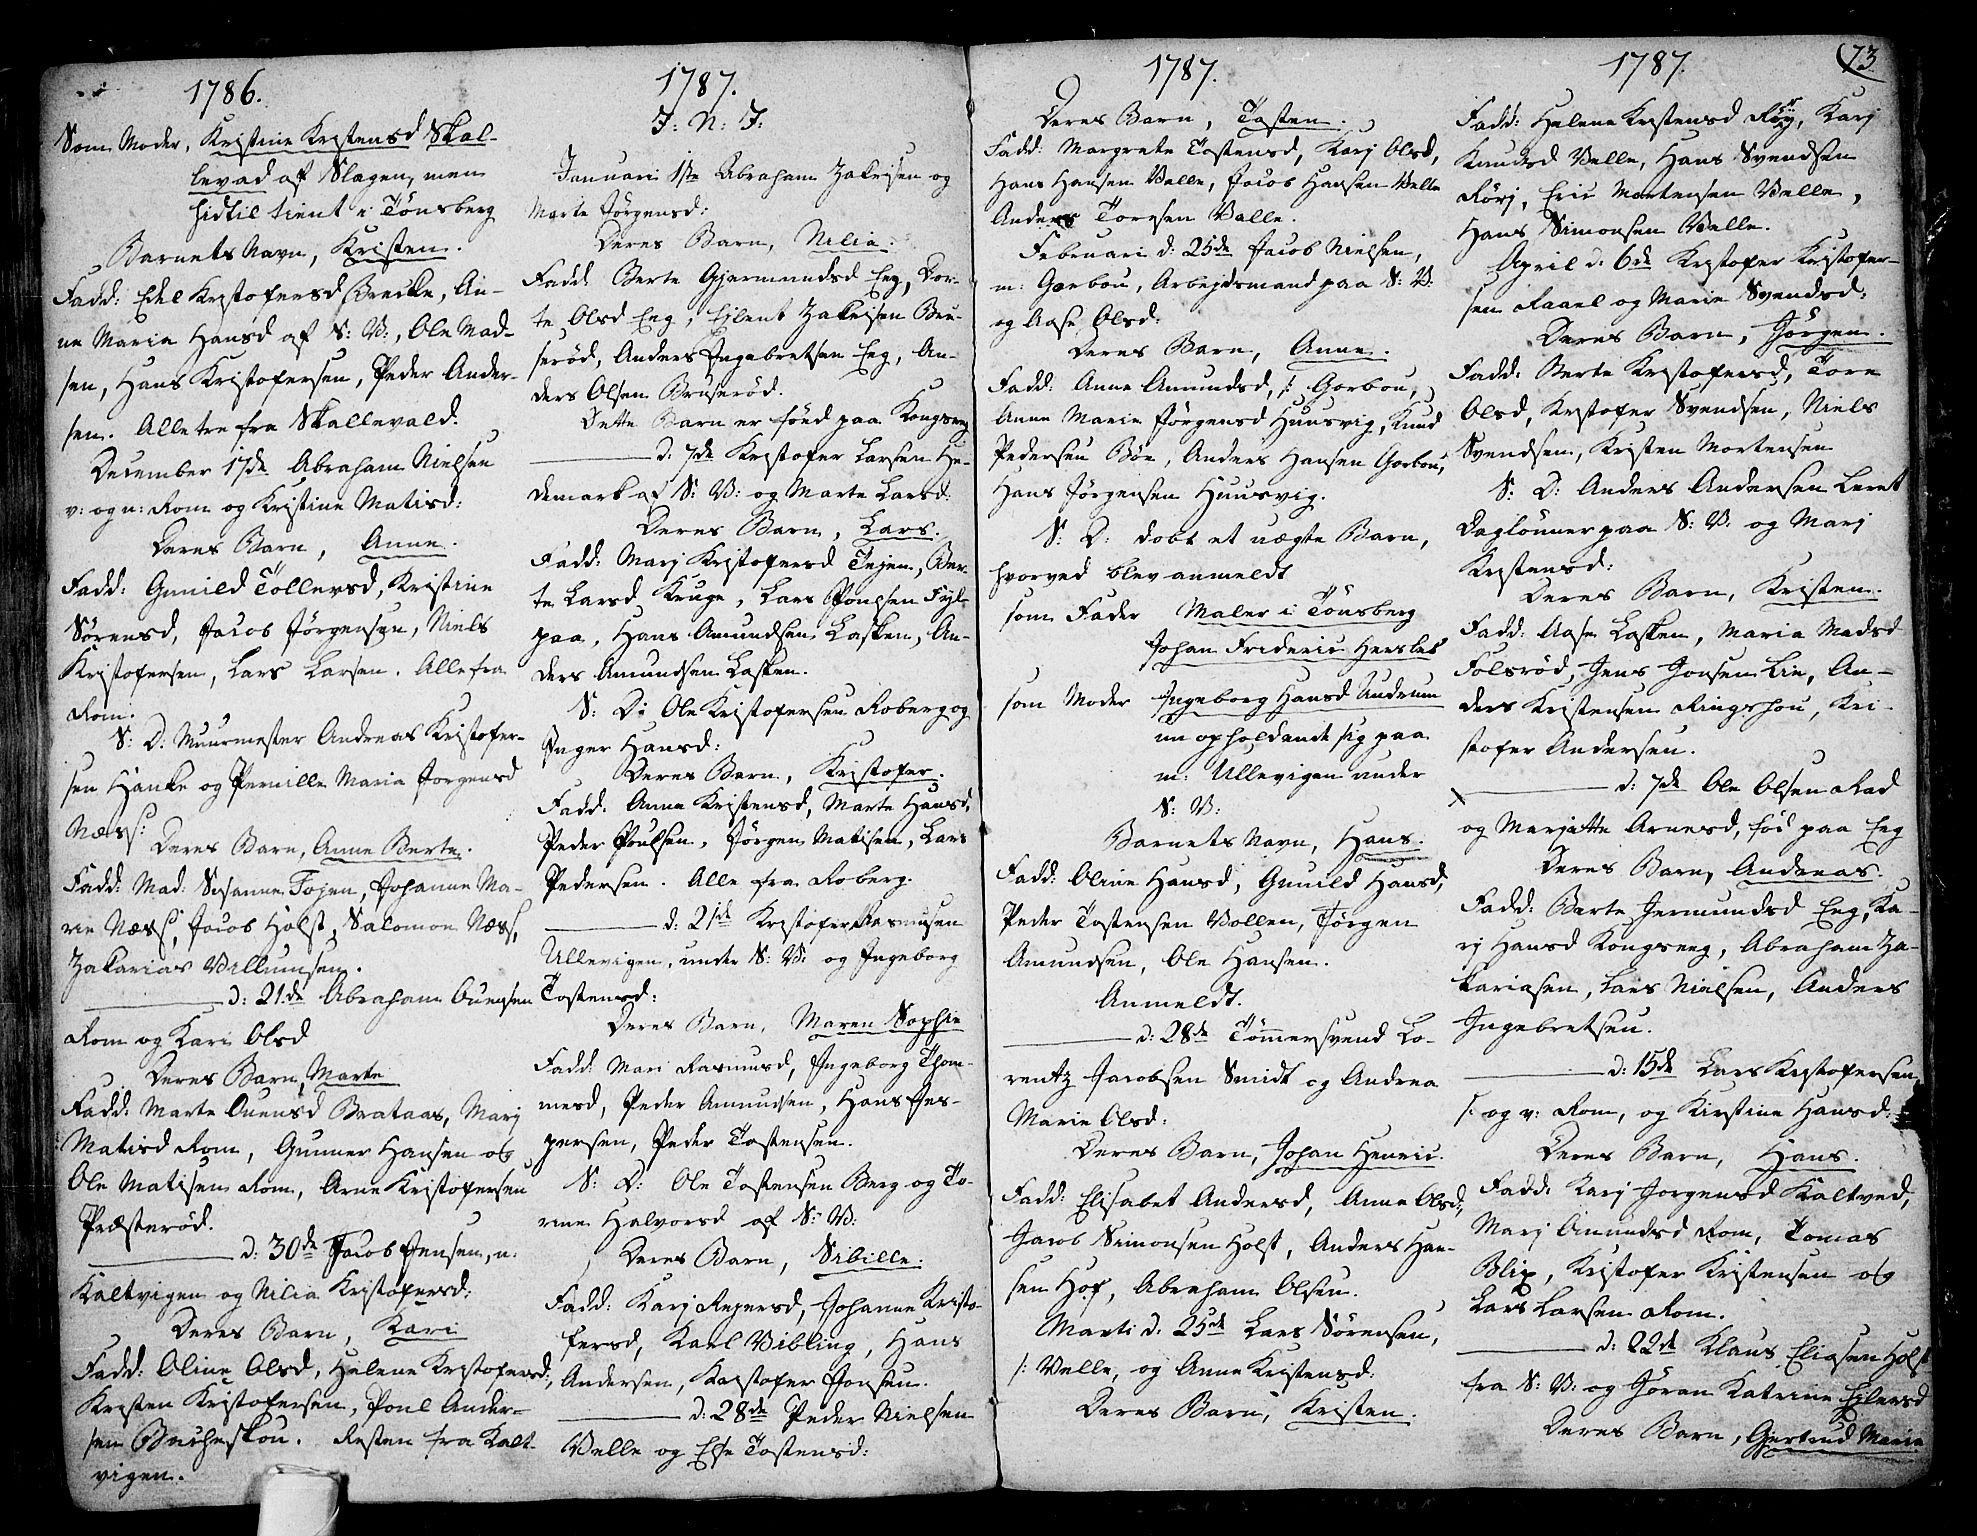 1786.
Som Moder, Kristine Kristensd Skal-
levad af Slagen, men
hidtil tient i Tönsberg
Barnets Navn, Kristen.
Fadd: Edel Kristofersd Brecke, An-
ne Maria Hansd af S: V:, Ole Mad-
sen, Hans Kristofersen, Peder Ander-
sen. Alle tre fra Skallevald.
December 17de Abraham Nielsen
v: og n: Rom og Kristine Matisd:
Deres Barn, Anne.
Fadd: Gunild Tollersd, Kristine
Sörensd, Jacob Jörgensen, Niels
Kristofersen, Lars Larsen. Alle fra
Rom.
S: D: Muurmester Andreas Kristofer-
sen Hanke og Pernille Maria Jorgensd
Næss:
Deres Barn, Anne Berte.
Fadd: Mad: Susanne Fojen, Johanne Ma-
rie Næss, Jacob Holst, Salomon Næss,
Zakarias Villumsen.
d: 21.de Abraham Ouensen
Rom og Kari Olsd
Deres Barn, Marte
Fadd: Marte Ouensd Brataas, Marj
Matisd Rom, Gunner Hansen og
Ole Matisen Rom, Arne Kristofersen
Præsteröd.
d: 30de Jacob Jensen, n:
Kaltvigen og Nilia Kristofersd:
Deres Barn, Kari
Fadd: Oline Olsd, Helene Kristofersd,
Kristen Kristofersen, Poul Ander-
sen Bacheskou. Resten fra Kalt-
vigen.
1787.
I: N: I:
Januari 1ste Abraham Zakrisen og
Marte Jörgensd:
Deres Barn, Nilia.
Fadd Berte Gjermundsd Eeg, Dor-
te Olsd Eeg, Eilent Zakrisen Bru-
seröd, Anders Ingebretsen Eeg, An-
ders Olsen Bruseröd.
Dette Barn er föed paa Kongseeg
d: 7de Kristofer Larsen He-
demark af S: V: og Marte Larsd.
Deres Barn, Lars.
Fadd: Marj Kristofersd Tejen, Ber-
te Larsd Kruge, Lars Poulsen Fyl-
paa, Hans Amundsen Lasken, An-
ders Amundsen Lasken.
S: D: Ole Kristofersen Roberg og
Inger Hansd:
Deres Barn, Kristofer.
Fadd: Anne Kristensd, Marte Hansd,
Peder Poulsen, Jörgen Matisen, Lars
Pedersen. Alle fra Roberg.
d: 21de Kristofer Rasmusen
Ullevigen, under S: V: og Ingeborg
Tostensd:
Deres Barn, Maren Sophie
Fadd Mari Rasmusd, Ingeborg Thom-
mesd, Peder Amundsen, Hans Jes-
persen, Peder Tostensen.
S: D: Ole Tostensen Berg og To-
rine Halvorsd af S: V:
Deres Barn, Sibille.
Fadd: Karj Rejersd, Johanne Kristo-
fersd, Karl Vibling, Hans
Andersen, Kristofer Jonsen.
d: 28de Peder Nielsen
Velle og Else Tostensd:
1787.
Deres Barn, Tosten.
Fadd: Margrete Tostensd, Karj Olsd,
Hans Hansen Velle, Jacob Hansen Velle
Anders Toresen Valle.
Februari d: 25de Jacob Nielsen,
m: Gorbou, Arbejdsmand paa S: V:
og Aase Olsd:
Deres Barn, Anne.
Fadd: Anne Amundsd, s: Gorbou,
Anne Marie Jörgensd Huusvig, Knud
Pedersen Böe, Anders Hansen Gorbou,
Hans Jörgensen Huusvig.
S: D: dobt et uægte Barn,
hvorved blev anmeldt
som Fader Maler i Tönsberg
Johan Frideric Hersleb
som Moder Ingeborg Hansd Andrum
nu opholdende sig paa
m: Ullevigen under
S: V:
Barnets Navn, Hans.
Fadd: Oline Hansd, Gunild Hansd,
Peder Tostensen Vollen, Jörgen
Amundsen, Ole Hansen.
Anmeldt.
d: 28de Tömmersvend Lo-
rentz Jacobsen Smidt og Andrea
Marie Olsd:
Deres Barn, Johan Henric.
Fadd: Elisabet Andersd, Anne Olsd,
Jacob Simonsen Holst, Anders Han-
sen Hof, Abraham Olsen.
Marti d: 25de Lars Sörensen,
s: Velle, og Anne Kristensd:
Deres Barn, Kristen.
1787. 73
Fadd: Helene Kristensd Röy, Karj
Knudsd Velle, Hans Svendsen
Rörj, Eric Mortensen Velle,
Hans Simonsen Velle.
April d: 6de Kristofer Kristofer-
sen Raael og Marie Svendsd:
Deres Barn, Jörgen.
Fadd: Berte Kristofersd, Tore
Olsd, Kristofer Svendsen, Niels
Svendsen, Kristen Mortensen
S: D: Anders Andersen Leret
Daglönner paa S: V: og Marj
Kristensd:
Deres Barn, Kristen.
Fadd: Aase Lasken, Maria Madsd
Folsröd, Jens Jonsen Lie, An-
ders Kristensen Ringshou, Kri-
stofer Andersen.
d: 7de Ole Olsen Rad
og Marjatte Arnesd, föd paa Eeg
Deres Barn, Andreas.
Fadd: Berte Jermundsd Eeg, Ka-
rj Hansd Kongseeg, Abraham Za-
kariasen, Lars Nielsen, Anders
Ingebretsen.
d: 15de Lars Kristofersen
s: og v: Rom, og Kirstine Hansd:
Deres Barn, Hans.
Fadd: Karj Jorgensd Kaltved,
Marj Amundsd Rom, Tomas
Blix, Kristofer Kristensen og
Lars Larsen Rom.
d: 22de Klaus Eliasen Holst
fra S: V: og Jöran Katrine Ejlersd
Deres Barn, Gertrud Maria